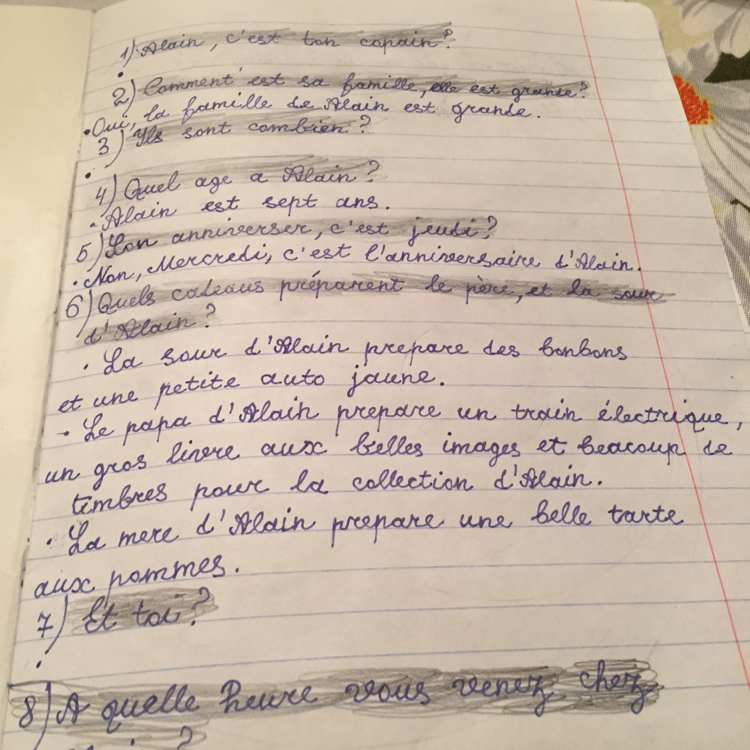 1) Alain, c'est ton copain?
•
2) Comment est sa famille, elle est grande?
• Oui, la famille de Alain est grande.
3) Ils sont combien?
•
4) Quel age a Alain?
• Alain est sept ans.
5) Son anniverser, c'est jeudi?
• Non, Mercredi, c'est l'anniversaire d'Alain.
6) Quels cadeaus préparent le père, et la sour
d'Alain?
• La sour d'Alain prepare des bonbons
et une petite auto jaune.
• Le papa d'Alain prepare un train électrique,
un gros livre aux belles images et beacoup de
timbres pour la collection d'Alain.
• La mere d'Alain prepare une belle tarte
aux pommes.
7) Et toi?
•
8) A quelle heure vous venez chez